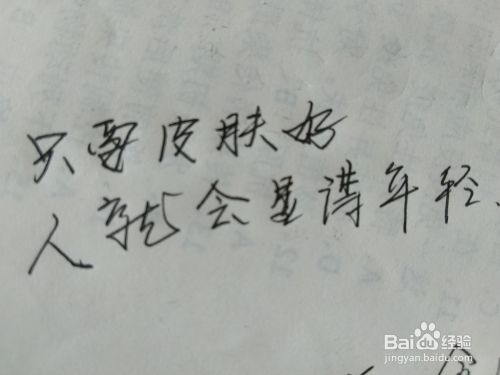 只要皮肤好
人就会显得年轻.
Baidu经验
jingyan.baidu.com